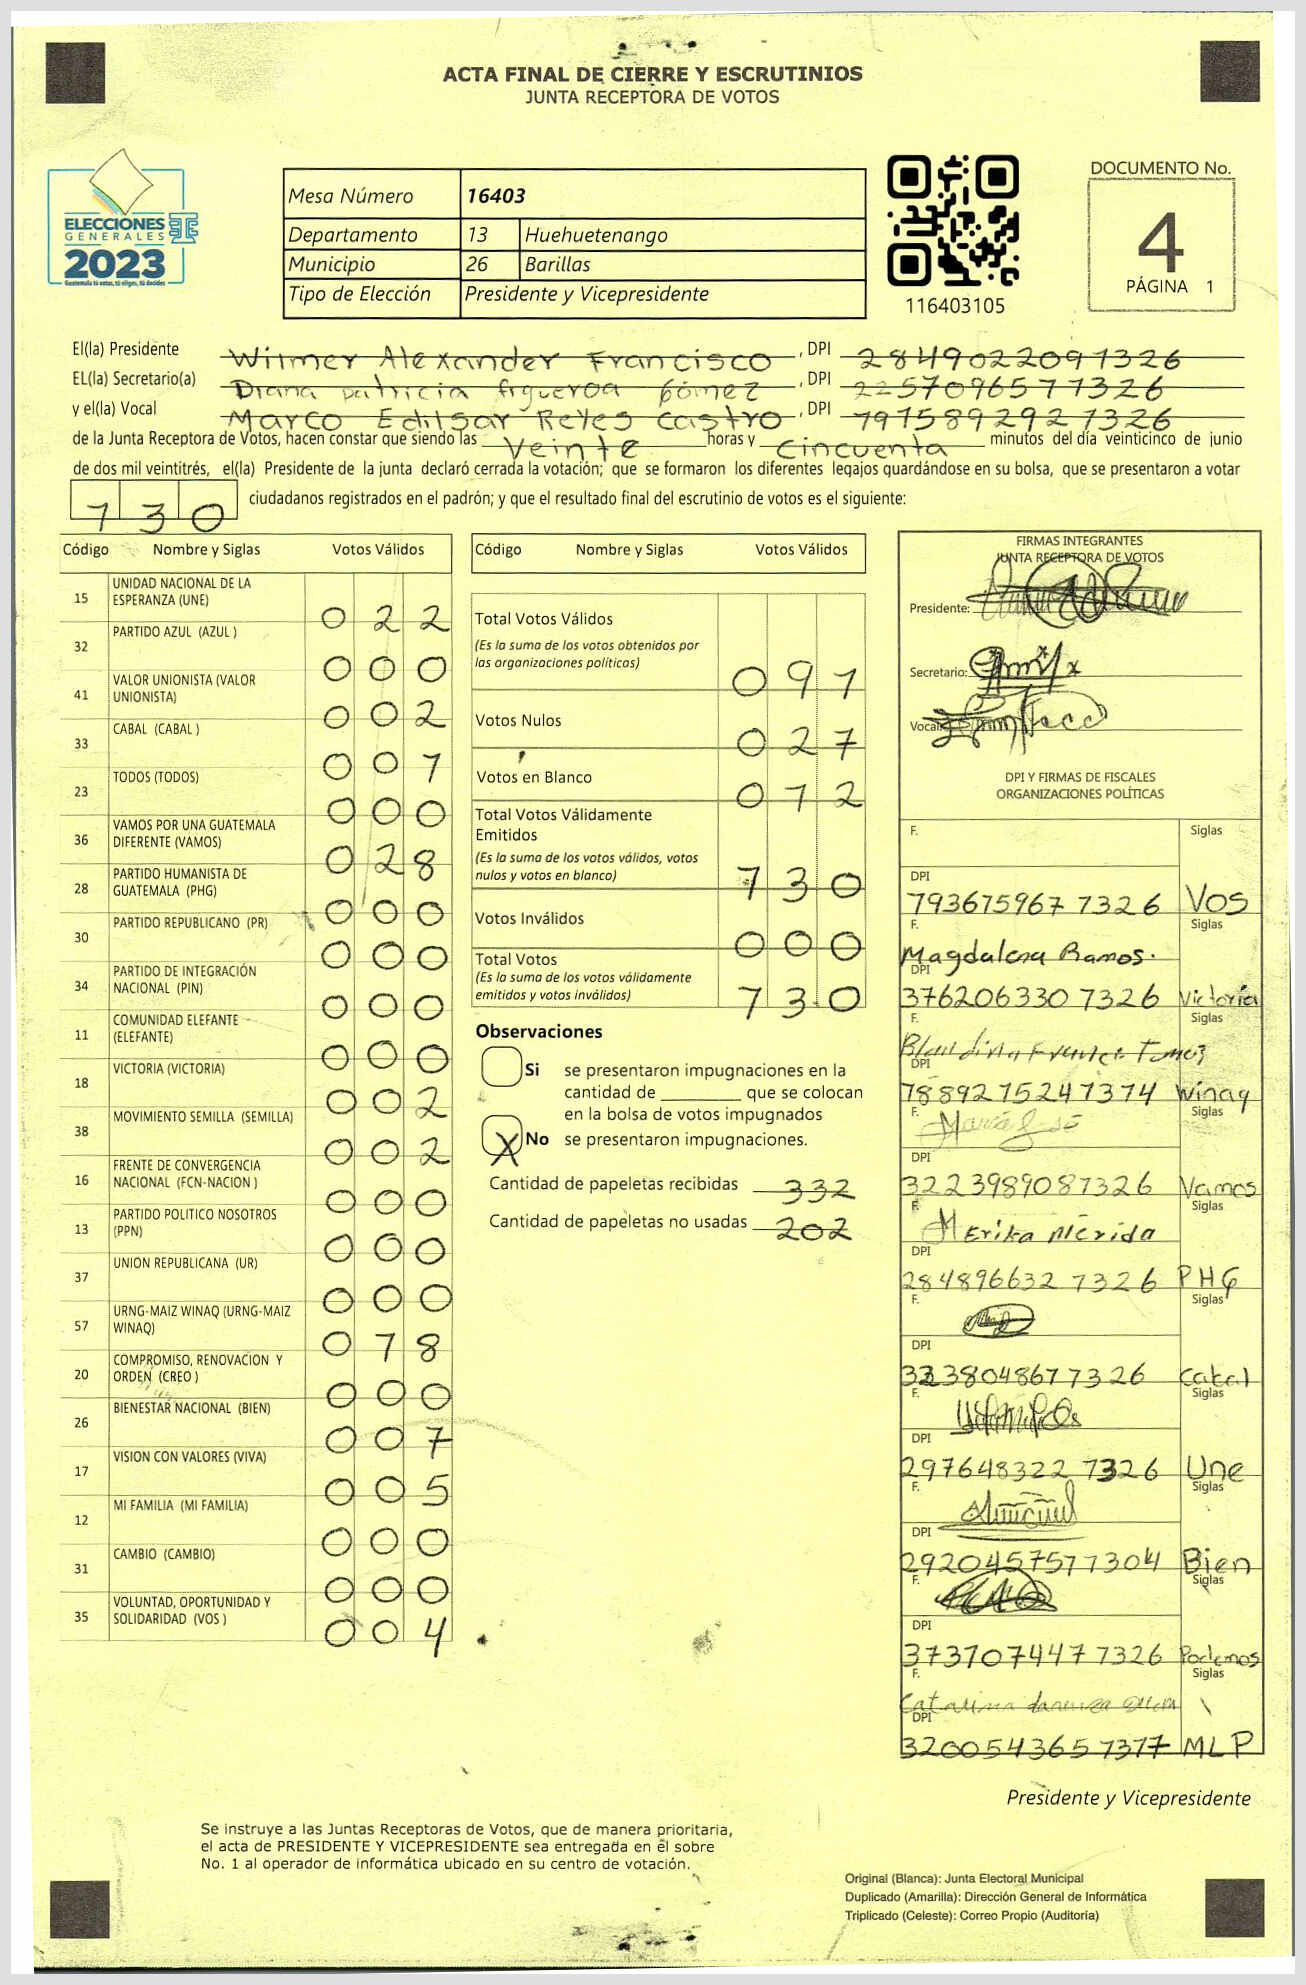 ACTA FINAL DE CIERRE Y ESCRUTINIOS
JUNTA RECEPTORA DE VOTOS
ELECCIONES
GENERALES
2023
Guatemala tú votas, tú eliges, tú decides
Mesa Número 16403
Departamento 13 Huehuetenango
Municipio 26 Barillas
Tipo de Elección Presidente y Vicepresidente
116403105
DOCUMENTO No.
4
PÁGINA 1
El(la) Presidente Wilmer Alexander Francisco, DPI 2849022091326
EL(la) Secretario(a) Diana patricia figueroa gómez, DPI 2257096571326
y el(la) Vocal Marco Edilsar Reyes Castro, DPI 1915892921326
de la Junta Receptora de Votos, hacen constar que siendo las Veinte horas y Cincuenta minutos del día veinticinco de junio
de dos mil veintitrés, el(la) Presidente de la junta declaró cerrada la votación; que se formaron los diferentes legajos guardándose en su bolsa, que se presentaron a votar
130 ciudadanos registrados en el padrón; y que el resultado final del escrutinio de votos es el siguiente:
Código Nombre y Siglas Votos Válidos
15 UNIDAD NACIONAL DE LA ESPERANZA (UNE) 022
32 PARTIDO AZUL (AZUL ) 000
41 VALOR UNIONISTA (VALOR UNIONISTA) 002
33 CABAL (CABAL ) 001
23 TODOS (TODOS) 000
36 VAMOS POR UNA GUATEMALA DIFERENTE (VAMOS) 028
28 PARTIDO HUMANISTA DE GUATEMALA (PHG) 000
30 PARTIDO REPUBLICANO (PR) 000
34 PARTIDO DE INTEGRACIÓN NACIONAL (PIN) 000
11 COMUNIDAD ELEFANTE (ELEFANTE) 000
18 VICTORIA (VICTORIA) 002
38 MOVIMIENTO SEMILLA (SEMILLA) 002
16 FRENTE DE CONVERGENCIA NACIONAL (FCN-NACION ) 000
13 PARTIDO POLITICO NOSOTROS (PPN) 000
37 UNION REPUBLICANA (UR) 000
57 URNG-MAIZ WINAQ (URNG-MAIZ WINAQ) 018
20 COMPROMISO, RENOVACION Y ORDEN (CREO ) 000
26 BIENESTAR NACIONAL (BIEN) 007
17 VISION CON VALORES (VIVA) 005
12 MI FAMILIA (MI FAMILIA) 000
31 CAMBIO (CAMBIO) 000
35 VOLUNTAD, OPORTUNIDAD Y SOLIDARIDAD (VOS ) 004
Código Nombre y Siglas Votos Válidos
Total Votos Válidos 091
(Es la suma de los votos obtenidos por
las organizaciones políticas)
Votos Nulos 027
Votos en Blanco 012
Total Votos Válidamente
Emitidos 130
(Es la suma de los votos válidos, votos
nulos y votos en blanco)
Votos Inválidos 000
Total Votos 130
(Es la suma de los votos válidamente
emitidos y votos inválidos)
Observaciones
Si se presentaron impugnaciones en la
cantidad de ________ que se colocan
en la bolsa de votos impugnados
X No se presentaron impugnaciones.
Cantidad de papeletas recibidas 332
Cantidad de papeletas no usadas 202
FIRMAS INTEGRANTES
JUNTA RECEPTORA DE VOTOS
Presidente:
Secretario:
Vocal:
DPI Y FIRMAS DE FISCALES
ORGANIZACIONES POLÍTICAS
F. Siglas
DPI 1936159671326 VOS
F. Magdalena Ramos. Siglas
DPI 3762063301326 Victoria
F. Siglas
DPI 1889215241314 Winaq
F. María José Siglas
DPI 3223989081326 Vamos
F. M Erika Mérida Siglas
DPI 2848966321326 PHG
F. Siglas
DPI 3238048671326 Cabal
F. Siglas
DPI 2976483221326 Une
F. Siglas
DPI 2920457571304 Bien
F. Siglas
DPI 3737074471326 Podemos
F. Catarina Siglas
DPI 3200543651317 MLP
Presidente y Vicepresidente
Se instruye a las Juntas Receptoras de Votos, que de manera prioritaria,
el acta de PRESIDENTE Y VICEPRESIDENTE sea entregada en el sobre
No. 1 al operador de informática ubicado en su centro de votación.
Original (Blanca): Junta Electoral Municipal
Duplicado (Amarilla): Dirección General de Informática
Triplicado (Celeste): Correo Propio (Auditoría)